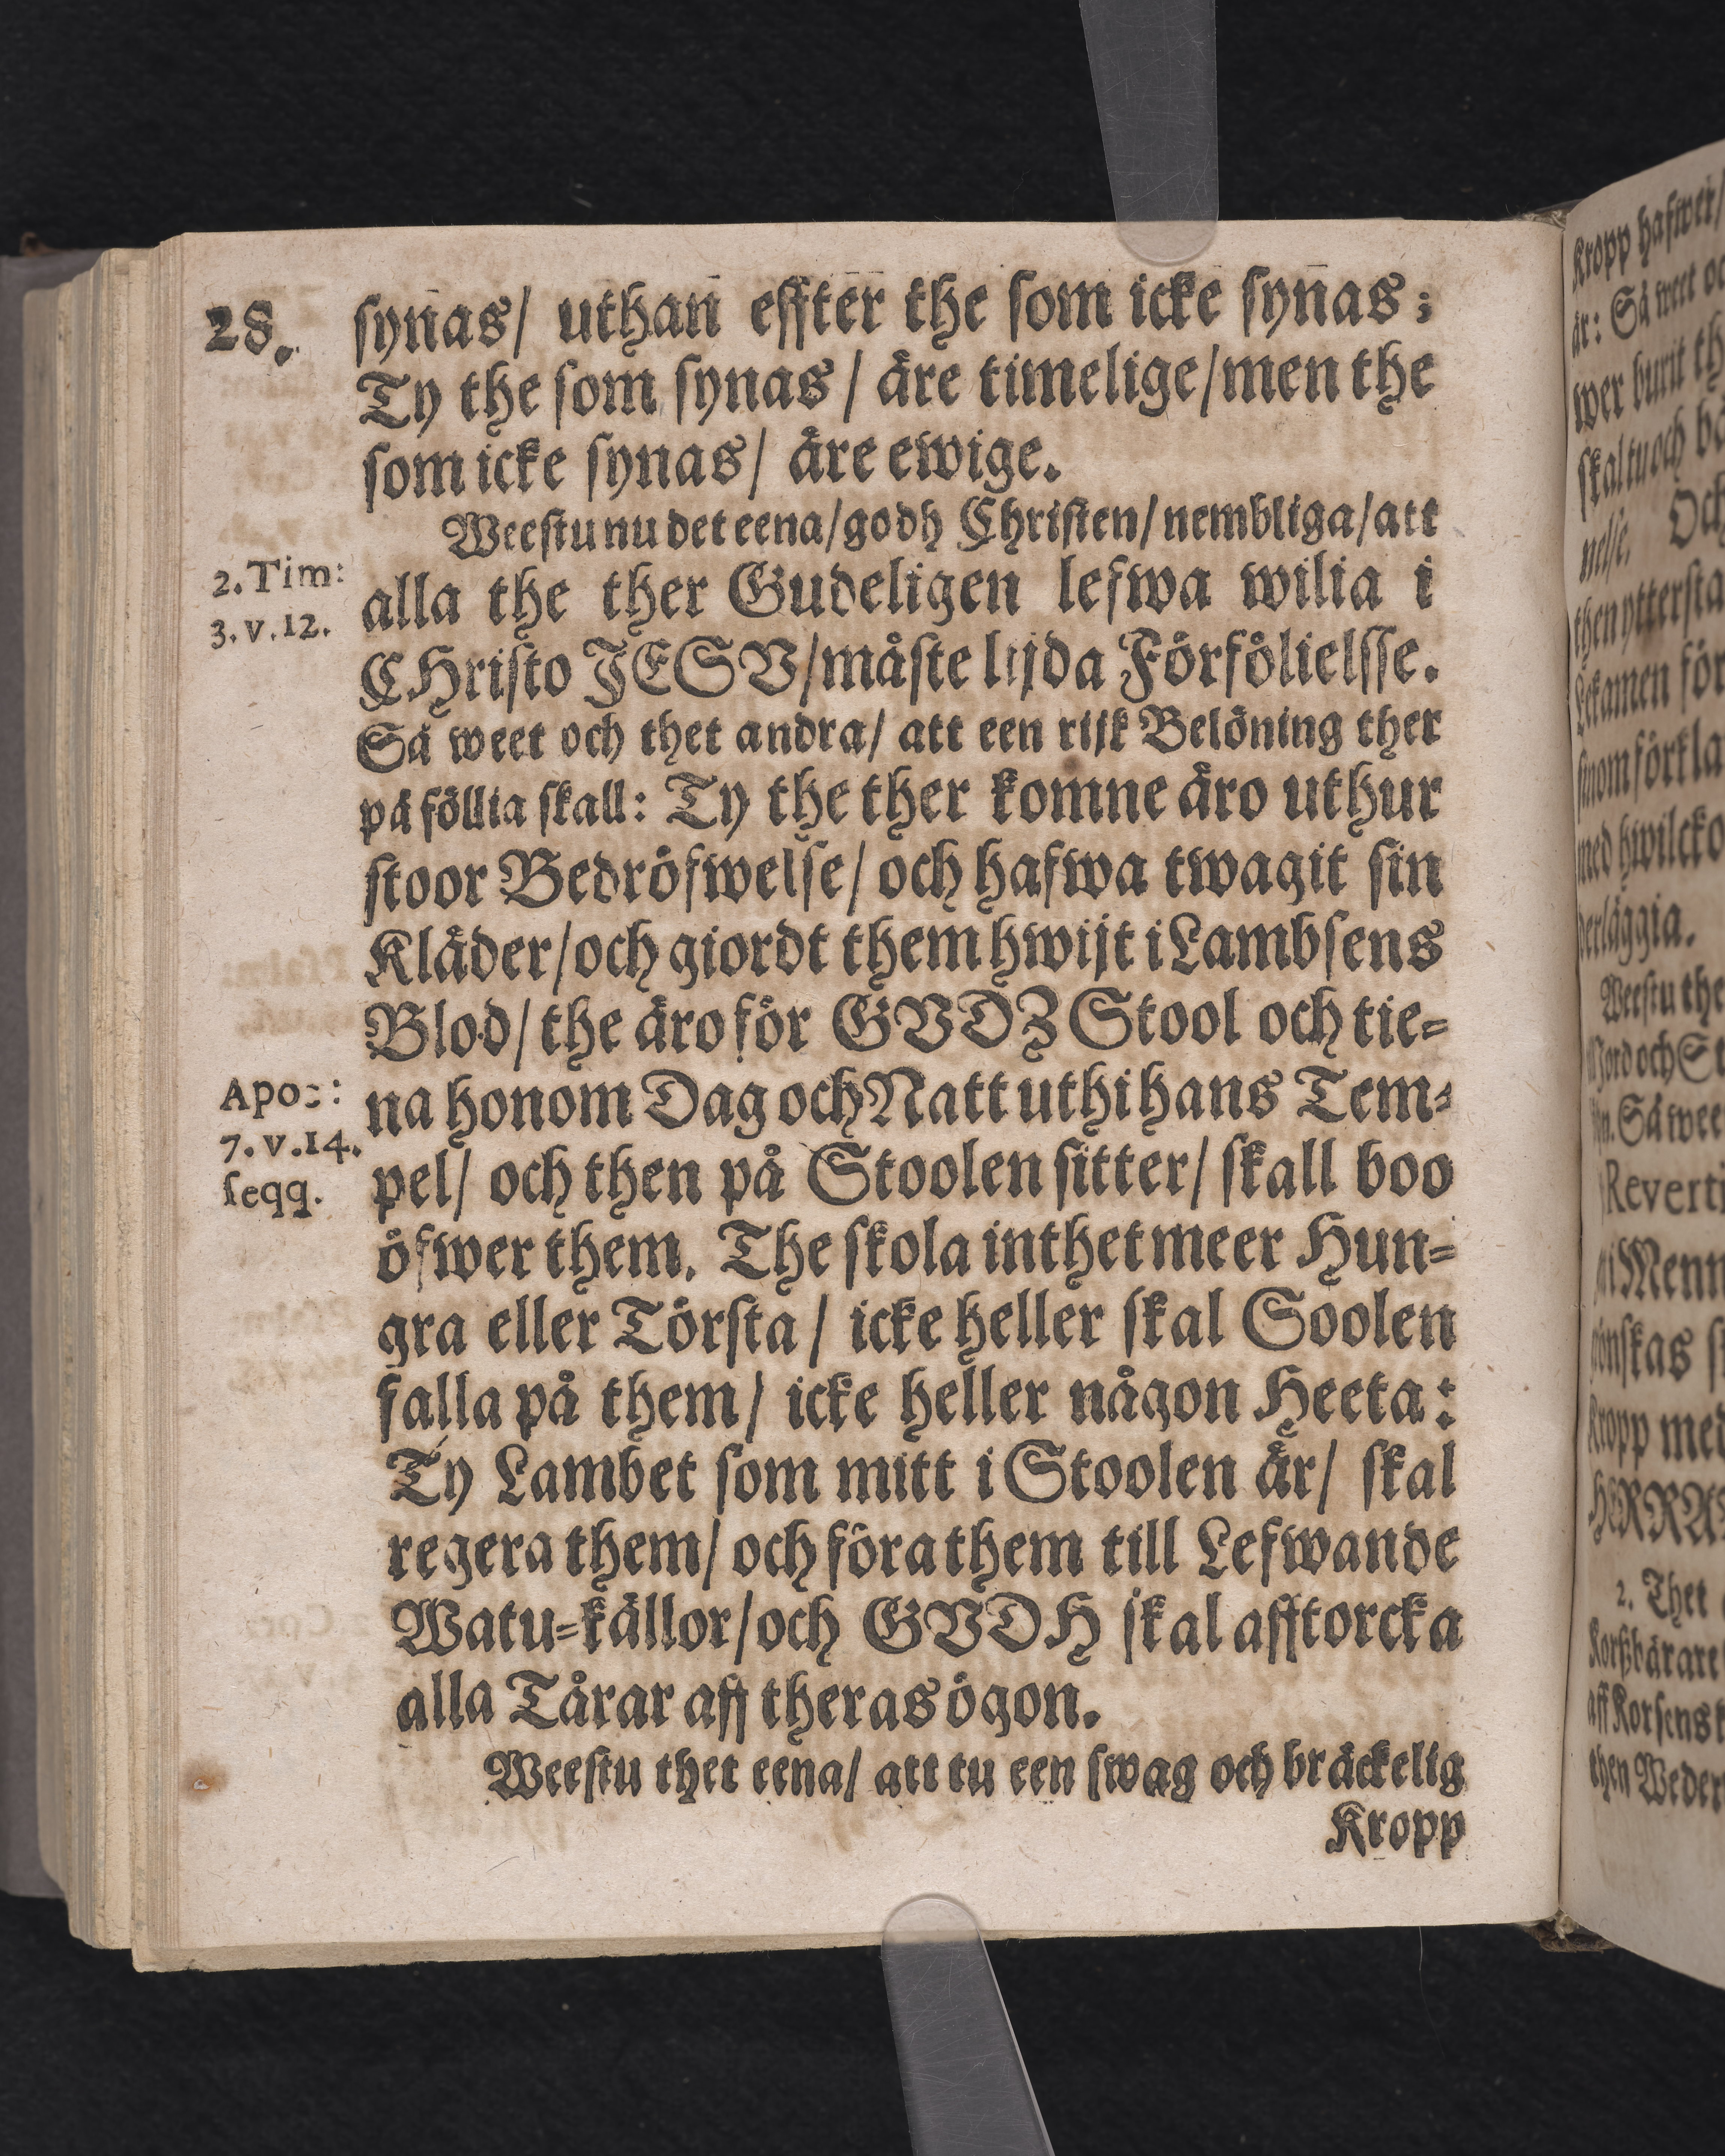 28.
ſynas/ uthan effter the ſom icke ſynas;
Ty the ſom ſynas/ äre timelige/men the
ſom icke ſynas/ äre ewige.
Weeſtu nu det eena/godh Chriſten/nembliga/att
2. Tim:
3. v. 12.
alla the ther Gudeligen lefwa wilia i
CHriſto JESV/måſte lijda Förfölielſſe.
Så weet och thet andra/ att een rijk Belöning ther
på föllia ſkall: Ty the ther komne äro uthur
ſtoor Bedröfwelſe/ och hafwa twagit ſin
Kläder/och giordt them hwijt i Lambſens
Blod/ the äro för GVDZ Stool och tie-
Apoc:
7. v. 14.
ſeqq.
na honom Dag och Natt uthi hans Tem-
pel/ och then på Stoolen ſitter/ ſkall boo
öfwer them. The ſkola inthet meer Hun-
gra eller Törſta/ icke heller ſkal Soolen
falla på them/ icke heller någon Heeta:
Ty Lambet ſom mitt i Stoolen är/ ſkal
regera them/ och föra them till Lefwande
Watu-källor/och GVDH ſkal afftorcka
alla Tårar aff theras ögon.
Weeſtu thet eena/ att tu een ſwag och bräckelig
Kropp
Kropp hafwer/
är: Så weet
wer burit
ſkal tu och
nelſe. Och
then ytterſta
Lekamen för
ſinom förkla
med hwilcko
derläggia.
Weeſtu the
Jord och
Så wee
Reverti
Menn
ſkas
Kropp med
HERRA
2. Thet
Korßbärare
aff Korſens
then Weder